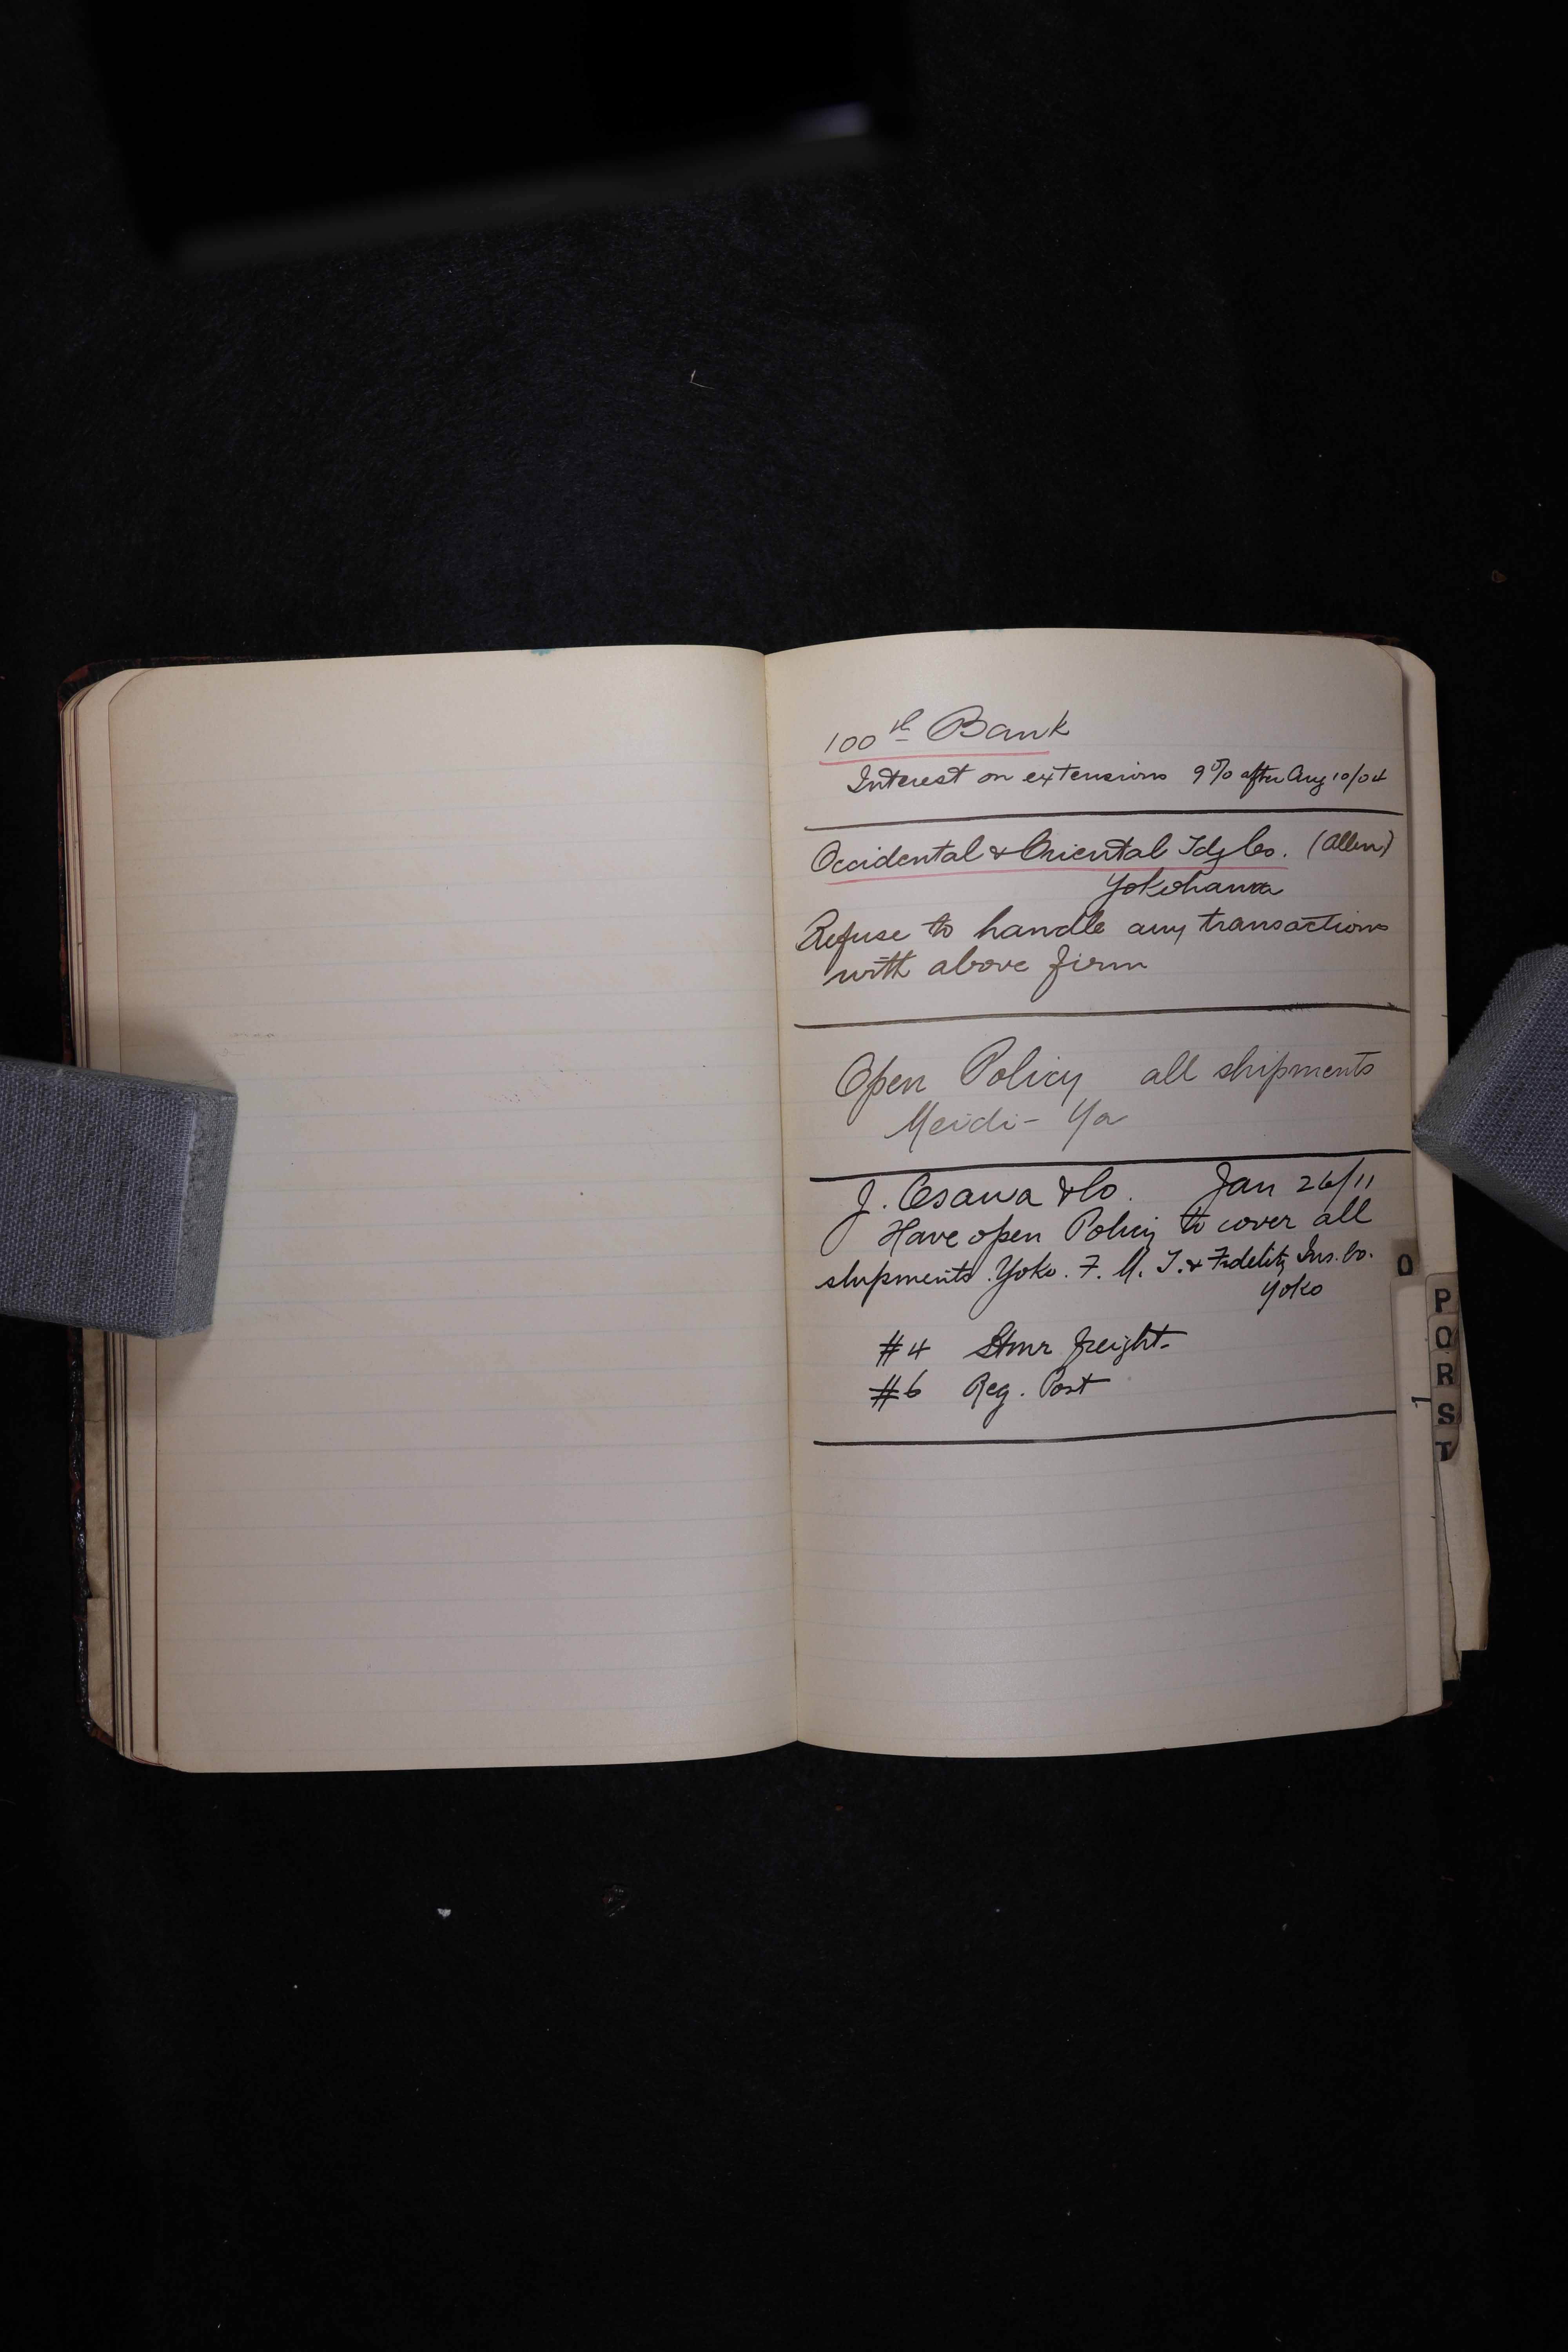 100th Bank
Interest on extensions 9% after Aug 10/04
Occidental & Oriental Tdg Co. (Allen)
Yokohama
Refuse to handle any transactions
with above firm
Open Policy all shipments
Meidi-Ya
J. Osawa & Co. Jan 26/11
Have open Policy to cover all
shipments. Yoko. F. M. T. & Fidelity Ins. Co.
Yoko
#4 Stmr freight-
#6 Reg. Post
O
P
Q
R
S
T